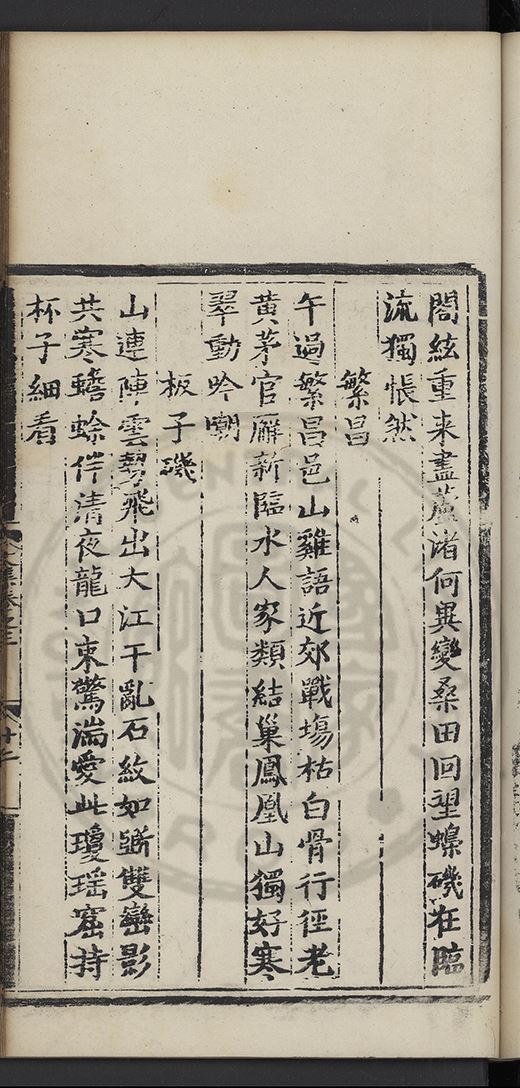 閤絃重来盡蘆渚何異變桑田回望蟂磯在臨
流獨悵然
繁昌
午過繁昌邑山雞語近郊戰塲枯白骨行徑老
黄茅官廨新臨水人家類結巢鳳凰山獨好寒
翠動吟嘲
板子磯
山連陣雲勢飛出大江干亂石紋如斲雙巒影
共寒蟾蜍伴清夜龍口束驚湍愛此瓊瑶窟持
杯子細看